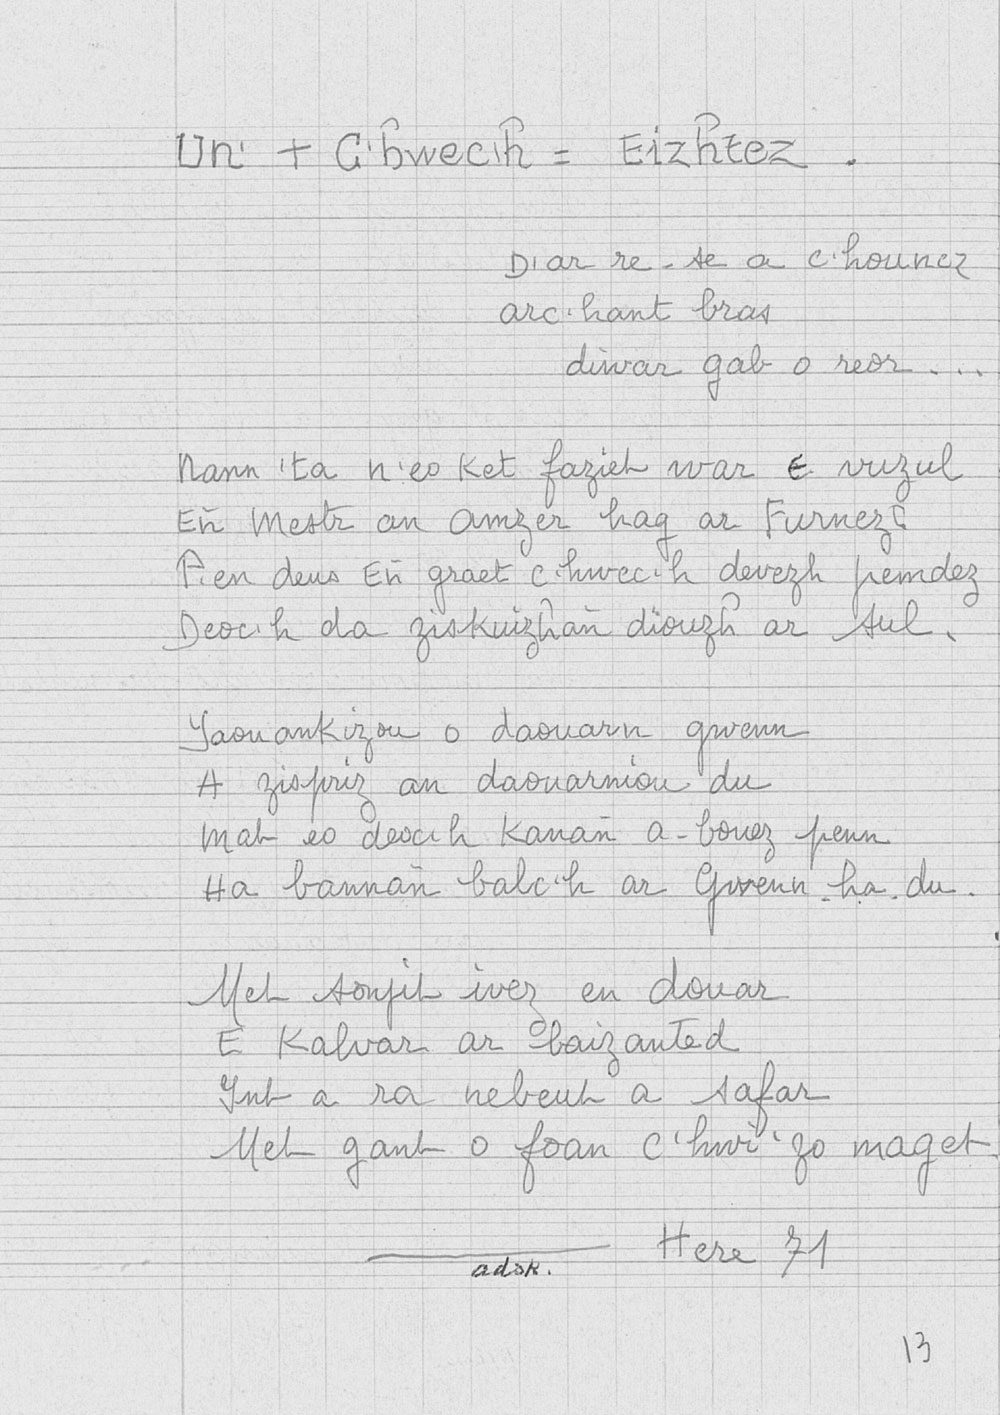 Un + C'hwec'h = Eizhtez .
D'ar re-se a c'hounez
arc'hant bras
diwar gab o reor ....
Nann 'ta n'eo ket faziet war E vuzul
Eñ Mestr an amzer hag ar Furnez
P'en deus Eñ graet c'hwec'h devezh pemdez
Deoc'h da ziskuizhañ diouzh ar Sul.
Yaouankizou o daouarn gwenn
A zispriz an daouarniou du
Mat eo deoc'h Kanañ a-bouez penn
Ha bannañ balc'h ar Gwenn-ha-du.
Met soñjit ivez en douar
E Kalvar ar baizanted
Int a ra nebeut a safar
Met gant o foan c'hwi 'zo maget.
Here 71
adsk.
13